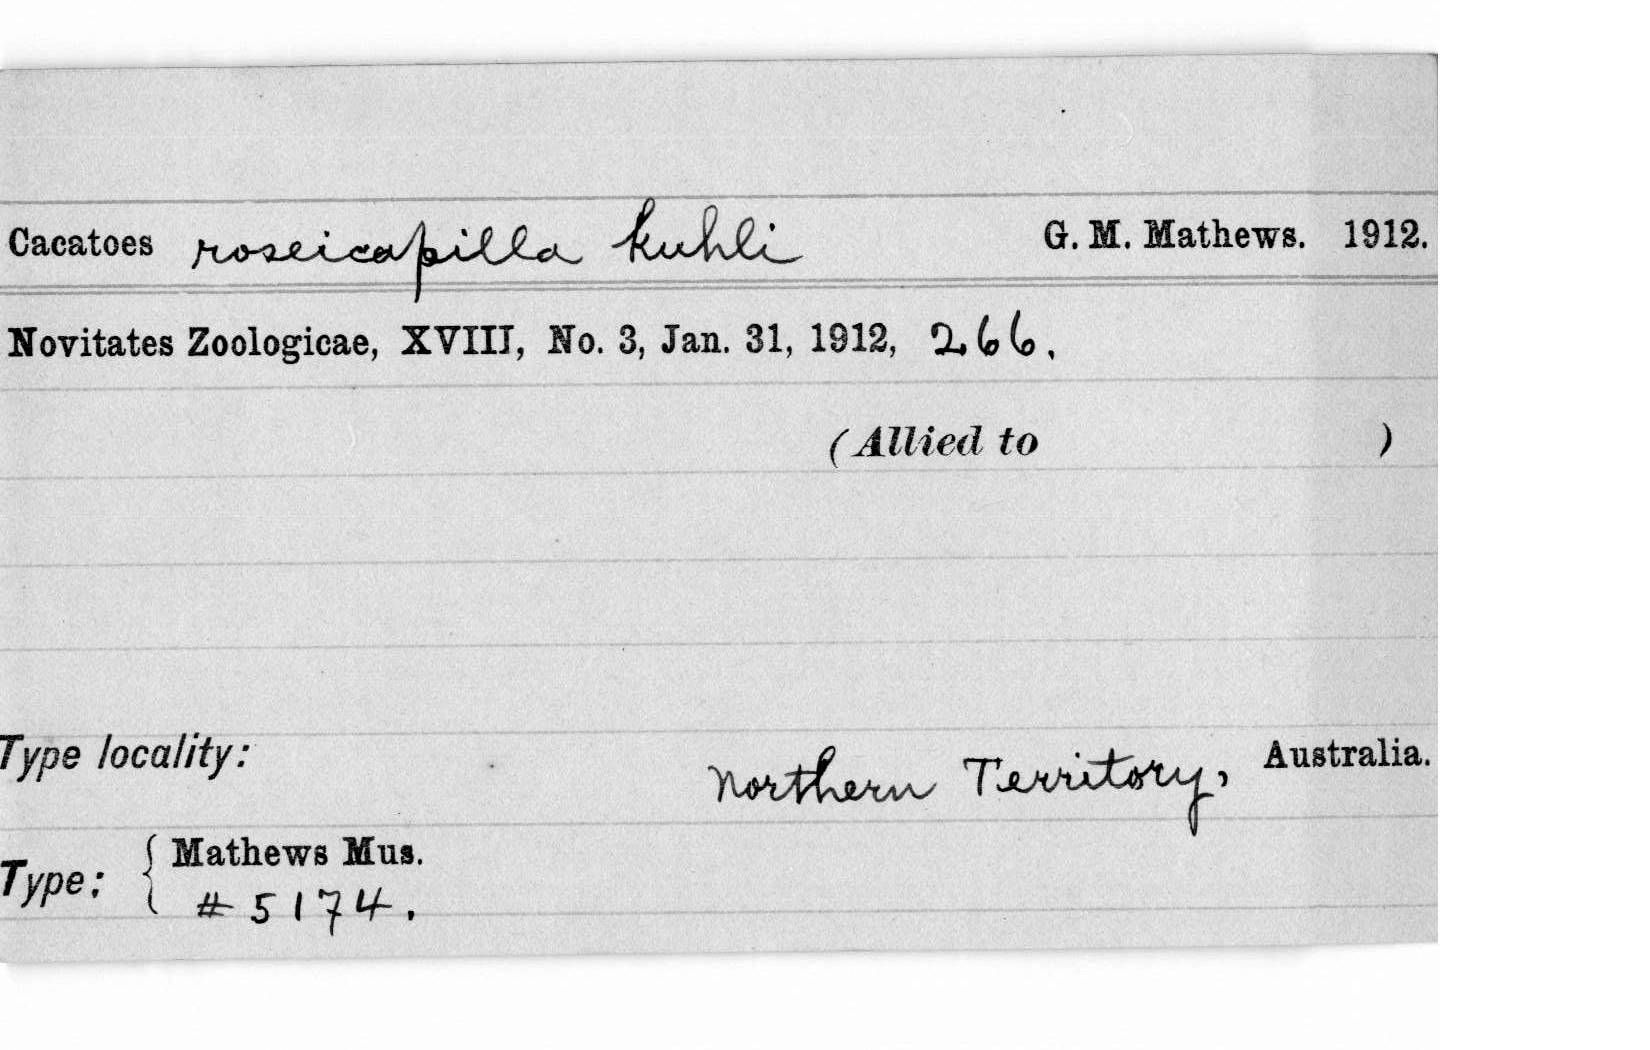 Cacatoes roseicapilla kuhli G. M. Mathews. 1912.
Novitates Zoologicae, XVIII, No. 3, Jan. 31, 1912, 266.
(Allied to )
Type locality: Northern Territory, Australia.
Type: { Mathews Mus.
# 5174.